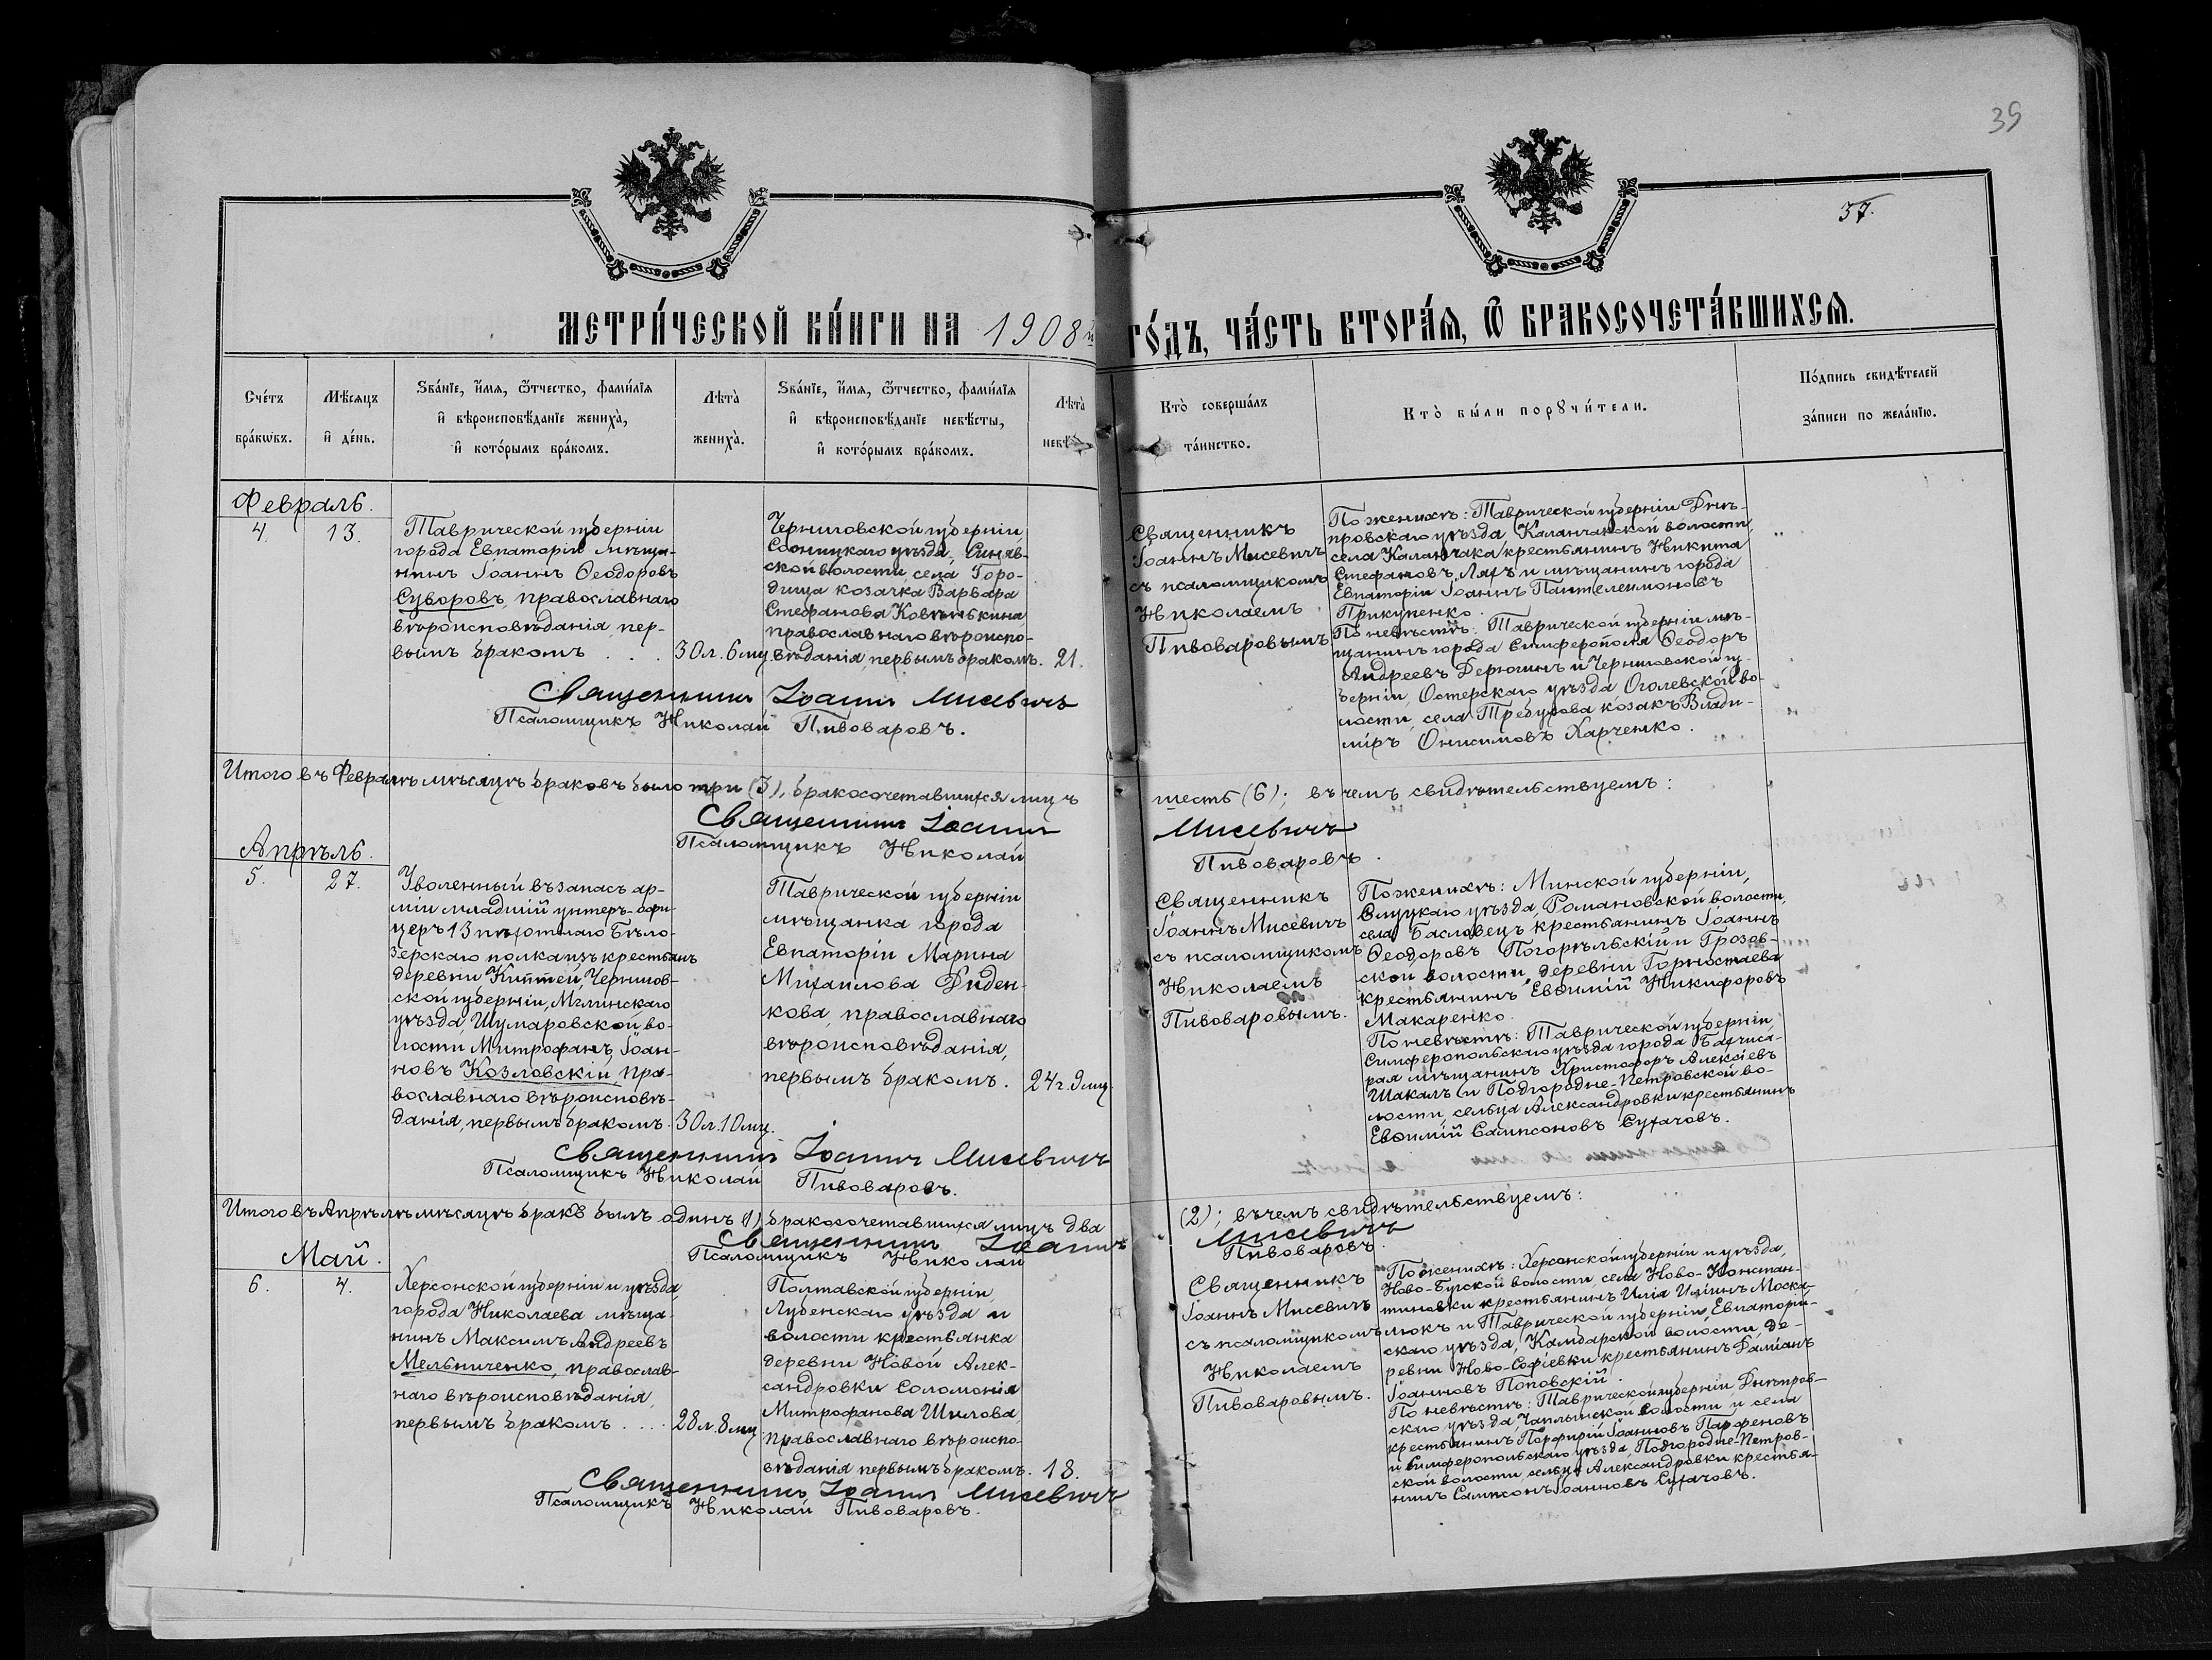 39
37.
МЕТРИ́ЧЕСКОЙ КНИ́ГИ НА 1908й ГО́ДЪ, ЧА́СТЬ ВТОРА́Я, Ѿ БРАКОСОЧЕТА́ВШИХСЯ.
Сче́тъ
бра́кѡвъ.
Мѣ́сяцъ
и҆ де́нь.
Ѕва́нїе, и҆́мя, ѻ҆́тчество, фами́лїя
и҆ вѣроисповѣ́данїе жениха̀,
и҆ кото́рымъ бра́комъ.
Лѣта̀
жениха̀.
Ѕва́нїе, и҆́мя, ѻ҆́тчество, фами́лїя
и҆ вѣроисповѣ́данїе невѣ́сты,
и҆ кото́рымъ бра́комъ.
Лѣта̀
невѣ́
Кто̀ соверша́лъ
та́инство.
Кто̀ бы́ли порꙋчи́тели.
По́дпись свидѣ́телей
за́писи по жела́нїю.
Февраль.
4. 13.
Таврической губерніи
города Евпаторіи мѣща-
нинъ Іоаннъ Ѳеодоровъ
Суворовъ, православнаго
вѣроисповѣданія, пер-
вымъ бракомъ . . .
30 л. 6 мц.
Черниговской губерніи
Сосницкаго уѣзда, Синяв-
ской волости, села Горо-
дища козачка Варвара
Стефанова Ковѣнькина
православнаго вѣроиспо-
вѣданія, первымъ бракомъ.
21.
Священникъ
Іоаннъ Мисевичъ
съ псаломщикомъ
Николаемъ
Пивоваровымъ
По женихѣ: Таврической губерніи Днѣ-
провскаго уѣзда, Каланчакской волости,
села Каланчака крестьянинъ Никита
Стефановъ Ляхъ и мѣщанинъ города
Евпаторіи Іоаннъ Пантелеимоновъ
Прикупенко.
По невѣстѣ: Таврической губерніи мѣ-
щанинъ города Симферополя Ѳеодоръ
Андреевъ Дерюгинъ и Черниговской гу-
берніи, Остерскаго уѣзда Оголевской во-
лости, села Требухова козакъ Влади-
міръ Онисимовъ Харченко.
Священникъ Іоаннъ Мисевичъ
Псаломщикъ Николай Пивоваровъ.
Итого въ Февралѣ мѣсяцѣ браковъ было три (3), бракосочетавшихся лицъ шесть (6); въ чемъ свидѣтельствуемъ:
Священникъ Іоаннъ Мисевичъ
Псаломщикъ Николай Пивоваровъ.
Апрѣль.
5. 27.
Уволенный въ запасъ ар-
міи младшій унтеръ-офи-
церъ 13 пѣхотнаго Бѣло-
зерскаго полка изъ крестьянъ
деревни Киптей, Чернигов-
ской губерніи, Мглинскаго
уѣзда, Шумаровской во-
лости Митрофанъ Іоан-
новъ Козловскій, пра-
вославнаго вѣроисповѣ-
данія, первымъ бракомъ.
30 л. 10 мц.
Таврической губерніи
мѣщанка города
Евпаторіи Марина
Михаилова Диден-
кова, православнаго
вѣроисповѣданія,
первымъ бракомъ.
24 г. 9 мц.
Священникъ
Іоаннъ Мисевичъ
съ псаломщикомъ
Николаемъ
Пивоваровымъ.
По женихѣ: Минской губерніи,
Слуцкаго уѣзда, Романовской волости,
села Басловецъ крестьянинъ Іоаннъ
Ѳеодоровъ Погорѣльскій и Грозов-
ской волости, деревни Горностаева
крестьянинъ Евѳимій Никифоровъ
Макаренко.
По невѣстѣ: Таврической губерніи,
Симферопольскаго уѣзда города Бахчиса-
рая мѣщанинъ Христофоръ Алексіевъ
Шакалъ и Подгородне-Петровской во-
лости, сельца Александровки крестьянинъ
Евѳимій Сампсоновъ Сухачовъ.
Священникъ Іоаннъ Мисевичъ
Псаломщикъ Николай Пивоваровъ.
Итого въ Апрѣлѣ мѣсяцѣ бракъ былъ одинъ (1) бракосочетавшихся лицъ два (2); въ чемъ свидѣтельствуемъ:
Священникъ Іоаннъ Мисевичъ
Псаломщикъ Николай Пивоваровъ.
Май.
6. 4.
Херсонской губерніи и уѣзда
города Николаева мѣща-
нинъ Максимъ Андреевъ
Мельниченко, православ-
наго вѣроисповѣданія,
первымъ бракомъ . . . .
28 л. 8 мц
Полтавской губерніи,
Лубенскаго уѣзда и
волости крестьянка
деревни Новой Алек-
сандровки Соломонія
Митрофанова Шилова,
православнаго вѣроиспо-
вѣданія первымъ бракомъ.
18.
Священникъ
Іоаннъ Мисевичъ
съ псаломщикомъ
Николаемъ
Пивоваровымъ.
По женихѣ: Херсонской губерніи и уѣзда,
Ново-Бугской волости села Ново-Констан-
тиновки крестьянинъ Илія Иліинъ Моска-
люкъ и Таврической губерніи, Евпаторій-
скаго уѣзда, Камбарской волости де-
ревни Ново-Софіевки крестьянинъ Даміанъ
Іоанновъ Поповскій.
По невѣстѣ: Таврической губерніи, Днѣпров-
скаго уѣзда Чаплынской волости и села
крестьянинъ Порфирій Іоанновъ Парфеновъ
и Симферопольскаго уѣзда, Подгородне-Петров-
ской волости, сельца Александровки крестья-
нинъ Сампсонъ Іоанновъ Сухачовъ.
Священникъ Іоаннъ Мисевичъ
Псаломщикъ Николай Пивоваровъ.